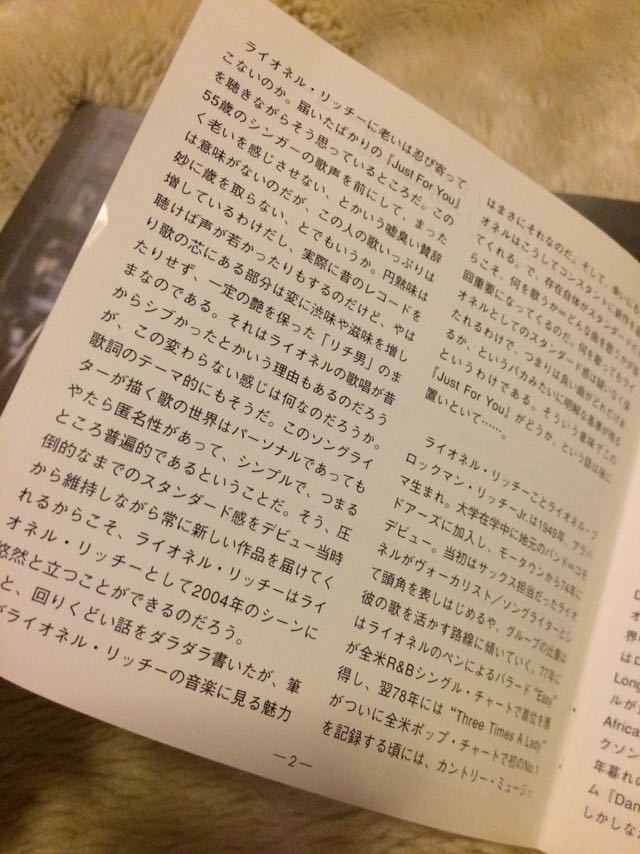 ライオネル・リッチーに老いは忍び寄って
こないのか。届いたばかりの『Just For You』
を聴きながらそう思っているところだ。この
55歳のシンガーの歌声を前にして、まった
く老いを感じさせない、とかいう嘘臭い賛辞
は意味がないのだが、この人の歌いっぷりは
妙に歳を取らない、とでもいうか。円熟味は
増しているわけだし、実際に昔のレコードを
聴けば声が若かったりもするのだけど、やは
り歌の芯にある部分は変に渋味や滋味を増し
たりせず、一定の艶を保った「リチ男」のま
まなのである。それはライオネルの歌唱が昔
からシブかったとかいう理由もあるのだろう
が、この変わらない感じは何なのだろうか。
歌詞のテーマ的にもそうだ。このソングライ
ターが描く歌の世界はパーソナルであっても
やたら匿名性があって、シンプルで、つまる
ところ普遍的であるということだ。そう、圧
倒的なまでのスタンダード感をデビュー当時
から維持しながら常に新しい作品を届けてく
れるからこそ、ライオネル・リッチーはライ
オネル・リッチーとして2004年のシーンに
悠然と立つことができるのだろう。
と、回りくどい話をダラダラ書いたが、筆
がライオネル・リッチーの音楽に見る魅力
はまさにそれなのだ。そして、幸いにも
オネルはこうしてコンスタントに新作を
てくれる。で、存在自体がスタンダード
らこそ、何を歌うか=どんな曲を歌うか
回重要になってくるのだ。何を歌ってもライ
オネルとしてのスタンダード感は疑いなく保
たれるわけで、つまりは良い曲がどれだけあ
るか、というバカみたいに明解な基準が残る
というわけである。そういう意味でこの
『Just For You』がどうか、という話は後に
置いといて……。
ライオネル・リッチーことライオネル・ブ
ロックマン・リッチーJr.は1949年、アラバ
マ生まれ。大学在学中に地元のバンド=コモ
ドアーズに加入し、モータウンから74年に
デビュー。当初はサックス担当だったライオ
ネルがヴォーカリスト/ソングライターとし
て頭角を表しはじめるや、グループの比重は
彼の歌を活かす路線に傾いていく。77年に
はライオネルのペンによるバラード“Easy”
が全米R&Bシングル・チャートで首位を獲
得し、翌78年には“Three Times A Lady”
がついに全米ポップ・チャートで初のNo.1
を記録する頃には、カントリー・ミュージッ
—2—
ロ
オ
界
は
Long
ルが
Africa
クソン
年暮れの
ム『Dan
しかしな